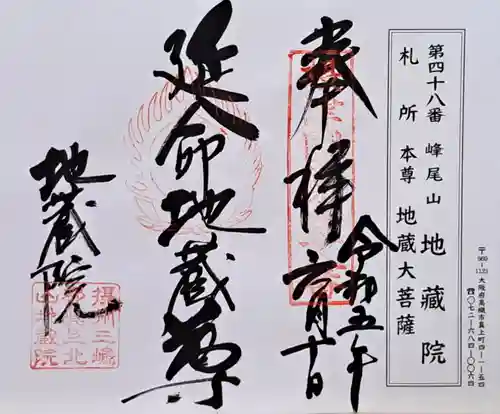 第四十八番 峰尾山 地蔵院
札所本尊 地蔵大菩薩
〒569-1121 大阪府高槻市真上町四-一-五四
☎〇七二-六八四-〇〇六四
奉拝
令和五年
六月十日
延命地蔵尊
地蔵院